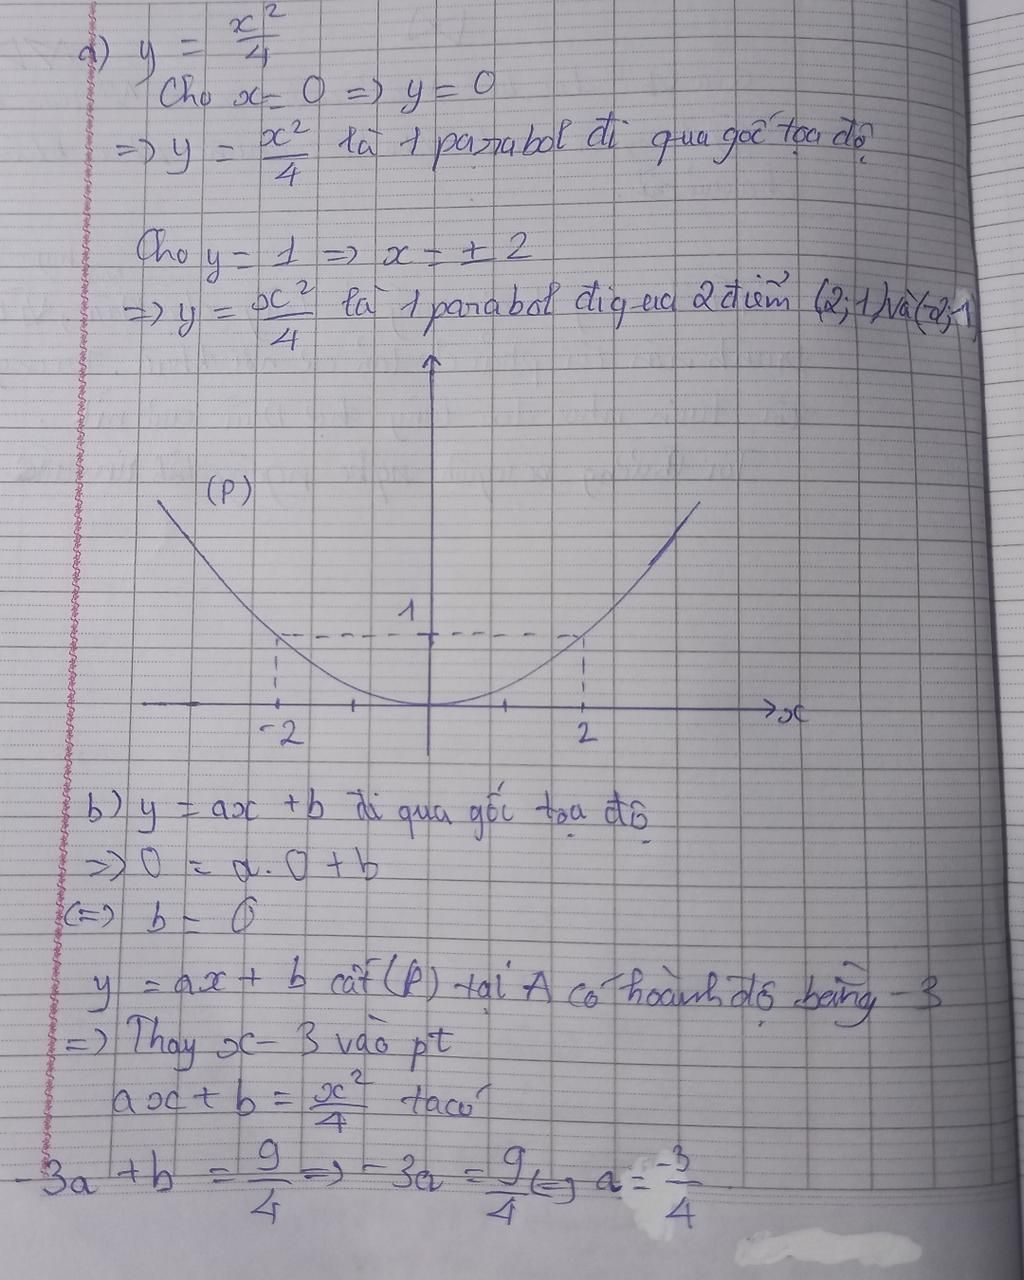 a) y = x²/4
Cho x = 0 => y = 0
=> y = x²/4 là 1 parabol đi qua gốc tọa độ
Cho y = 1 => x = ± 2
=> y = x²/4 là 1 parabol đi qua 2 điểm (2; 1) và (-2; 1)
(P)
1
-2 2 x
b) y = ax + b đi qua gốc tọa độ
=> 0 = a. 0 + b
<=> b = 0
y = ax + b cắt (P) tại A có hoành độ bằng -3
=> Thay x = -3 vào pt
ax + b = x²/4 ta có
-3a + b = 9/4 => -3a = 9/4 <=> a = -3/4